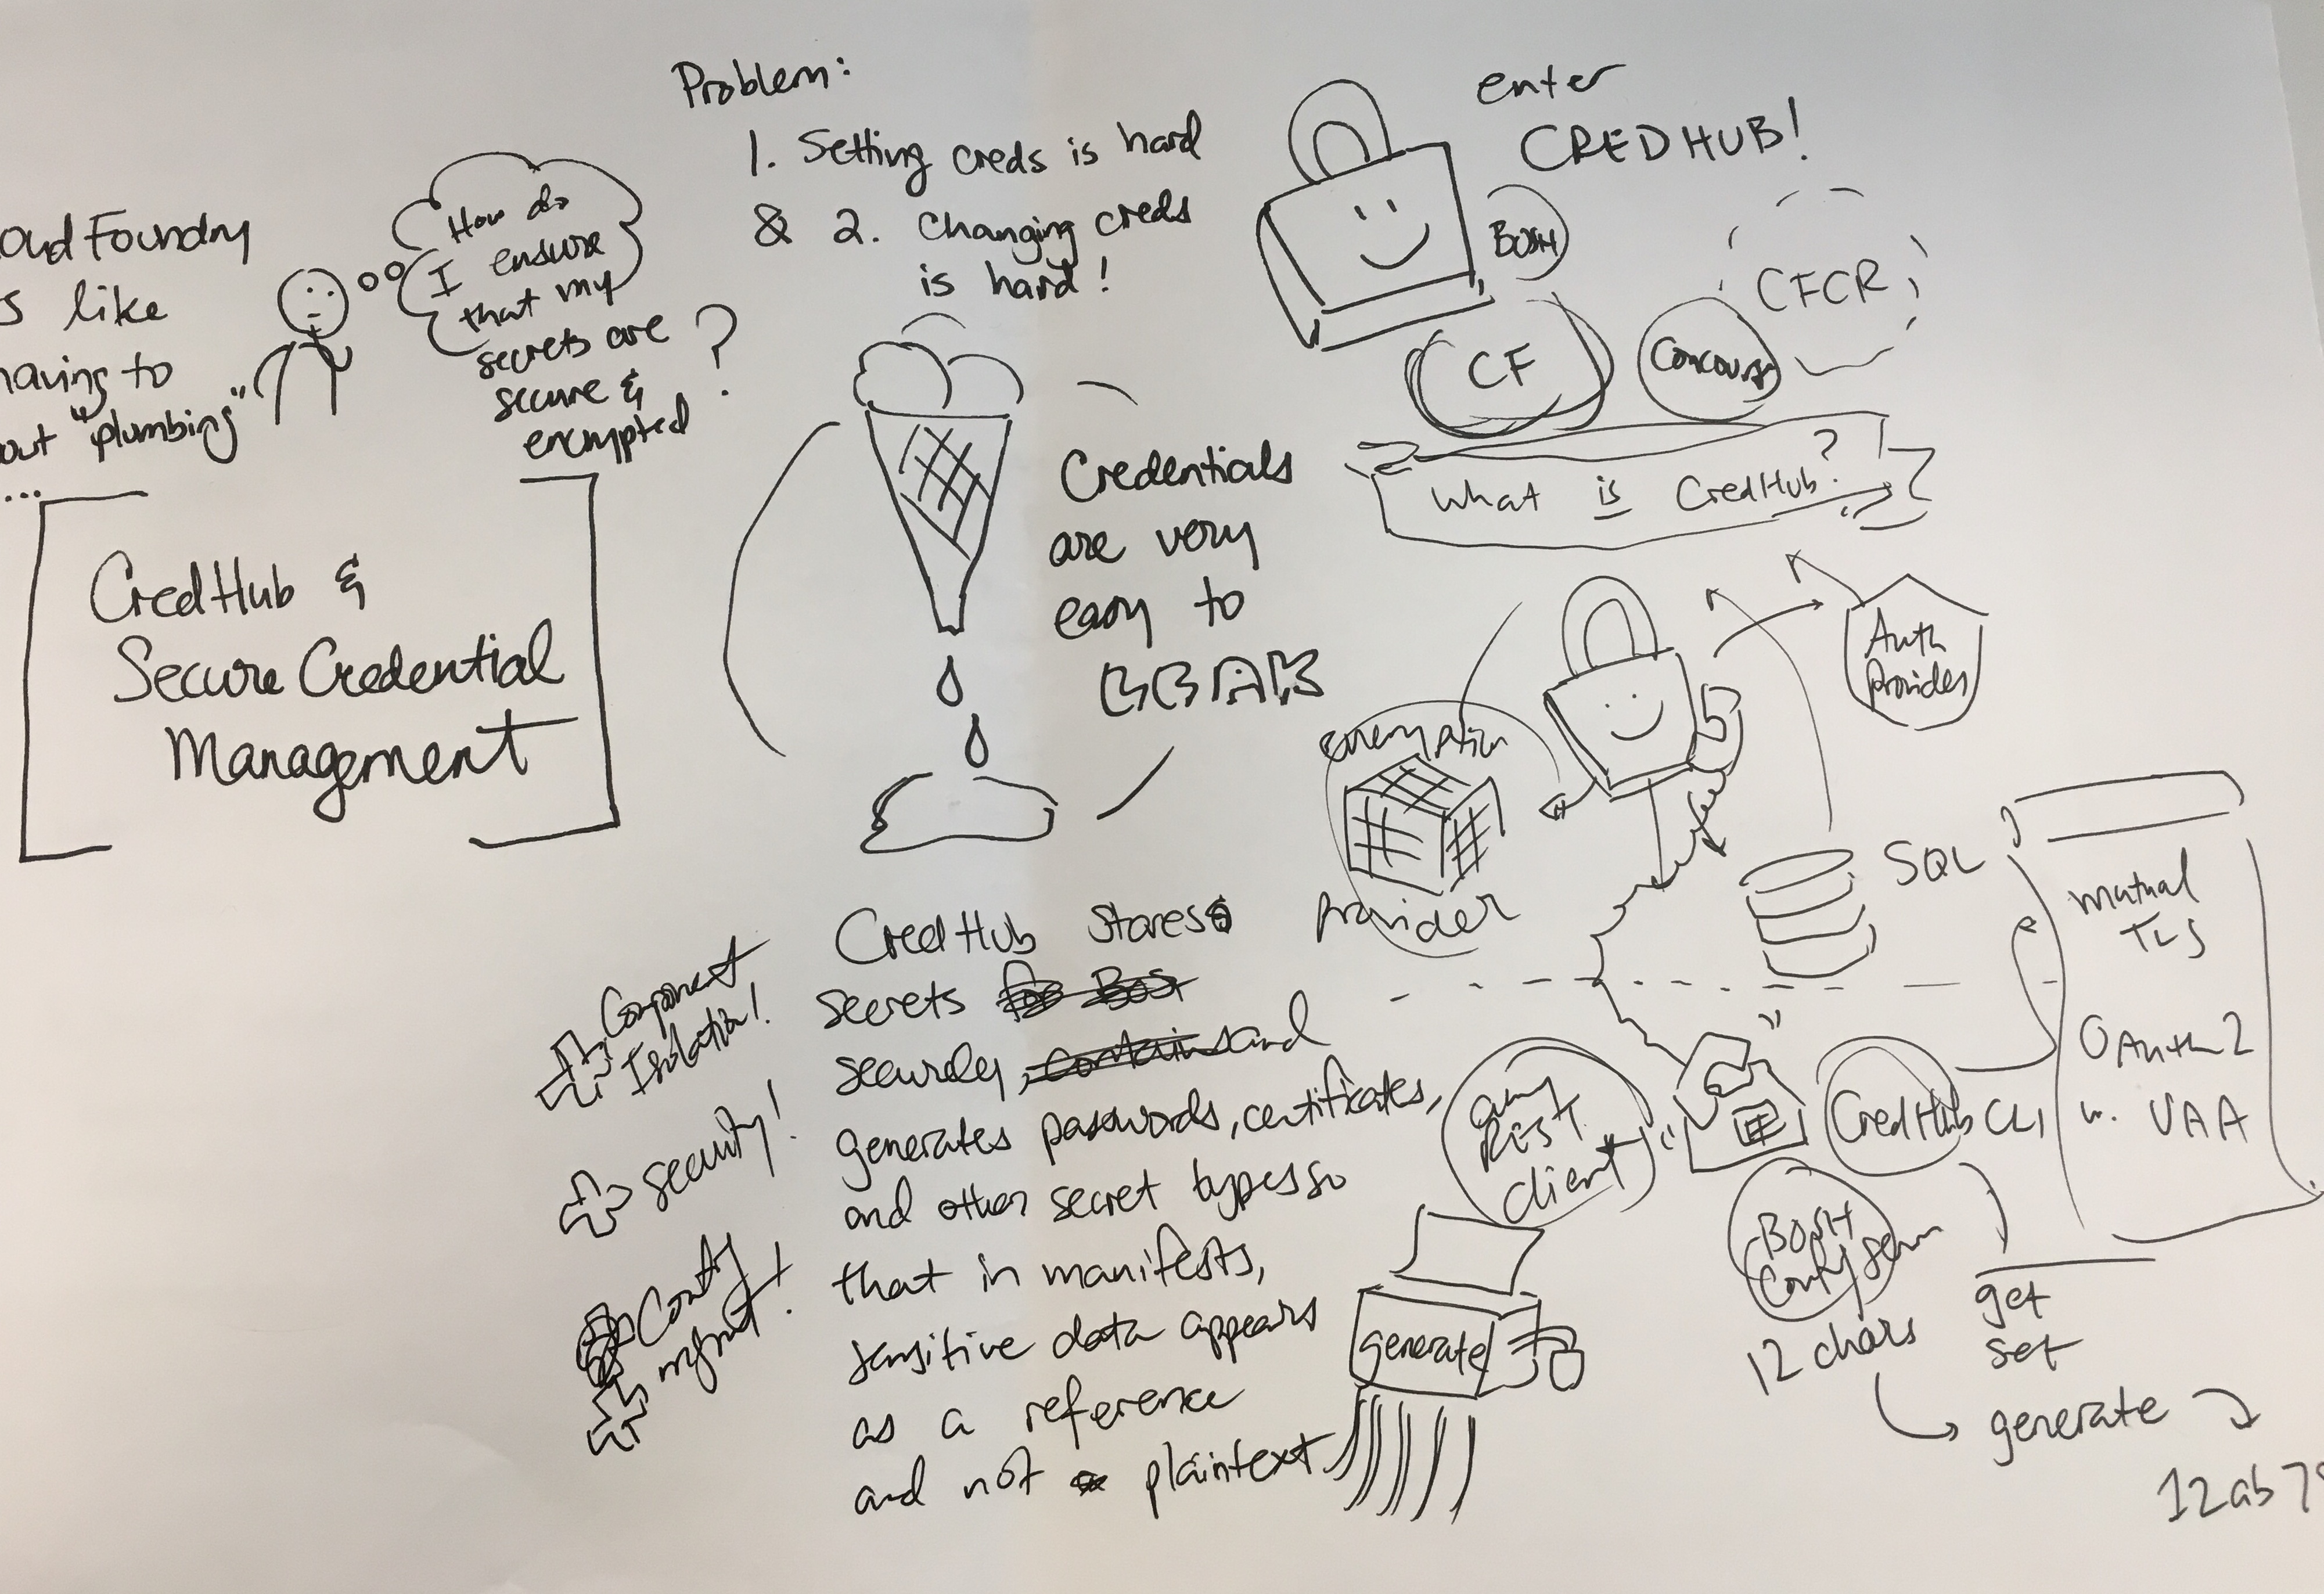 oud Foundry
s like
having to
out "plumbing"
...
How do
I ensure
that my
secrets are
secure &
encrypted
?
CredHub &
Secure Credential
Management
Problem:
1. Setting creds is hard
& 2. Changing creds
is hard!
Credentials
are very
easy to
enter
CREDHUB!
BOSH
CF
Concourse
CFCR
What is CredHub?
Auth
Provider
encryption
Provider
SQL
mutual
TLS
OAuth2
w. UAA
CredHub stores
secrets
securely, and
generates passwords, certificates,
and other secret types so
that in manifests,
sensitive data appears
as a reference
and not plaintext
Component
Isolation!
security!
Config
mgmt!
any
REST
client
CredHub CLI
BOSH
Config Serv
generate
12 chars
get
set
generate
12ab7